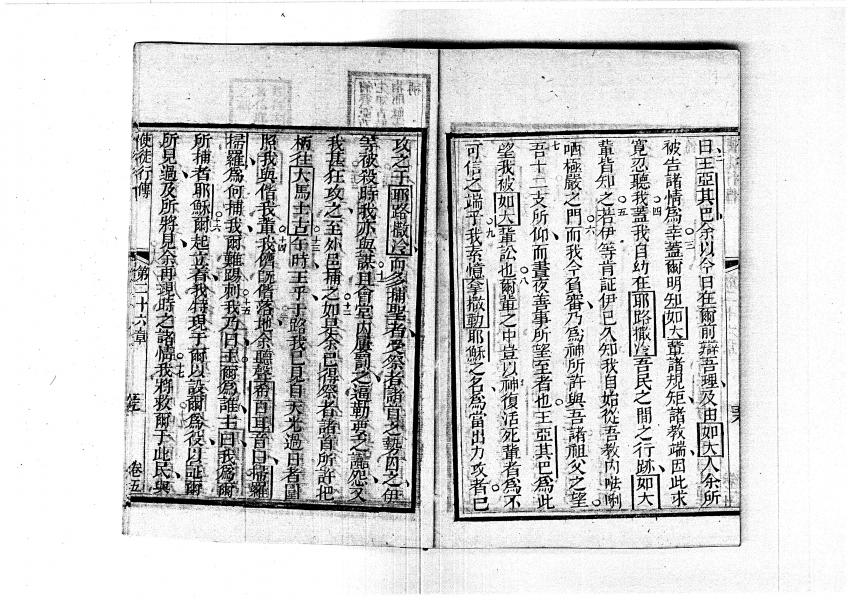 曰王亞其巴余以今日在爾前辯吾理及由如大人余所
被告諸情爲幸蓋爾明知如大輩諸規矩諸教端因此求
寬忍聽我蓋我自幼在耶路撒冷吾民之間之行跡如大
輩皆知之若伊等肯証伊已久知我自始從吾教內𠵽唎
哂極嚴之門而我今負審乃爲神所許與吾諸祖父之望
吾十二支所仰而晝夜善事所望至者也王亞其巴爲此
望我被如大輩訟也爾輩之中豈以神復活死輩者爲不
可信之端乎我素憶拿撒勒耶穌之名爲當出力攻者已
攻之于耶路撒冷而多捕聖者受祭者諸首之埶囚之伊
等被殺時我亦與謀且會堂內屢罰之逼勒耍之讟怨又
我甚狂攻之至外邑捕之如是余已得祭者諸首所許把
柄往大馬士古午時王乎于路我已見自天光過日者圍
照我與偕我輩我儕既偕落地余聽聲希百耳音曰掃羅
掃羅爲何捕我爾難踢刺我乃曰主爾爲誰主曰我爲爾
所捕者耶穌爾起立着我特現于爾以設爾爲役以証爾
所見過及所將見余再現時之諸情我將救爾于此民與
使徒行傳
第二十六章
卷五